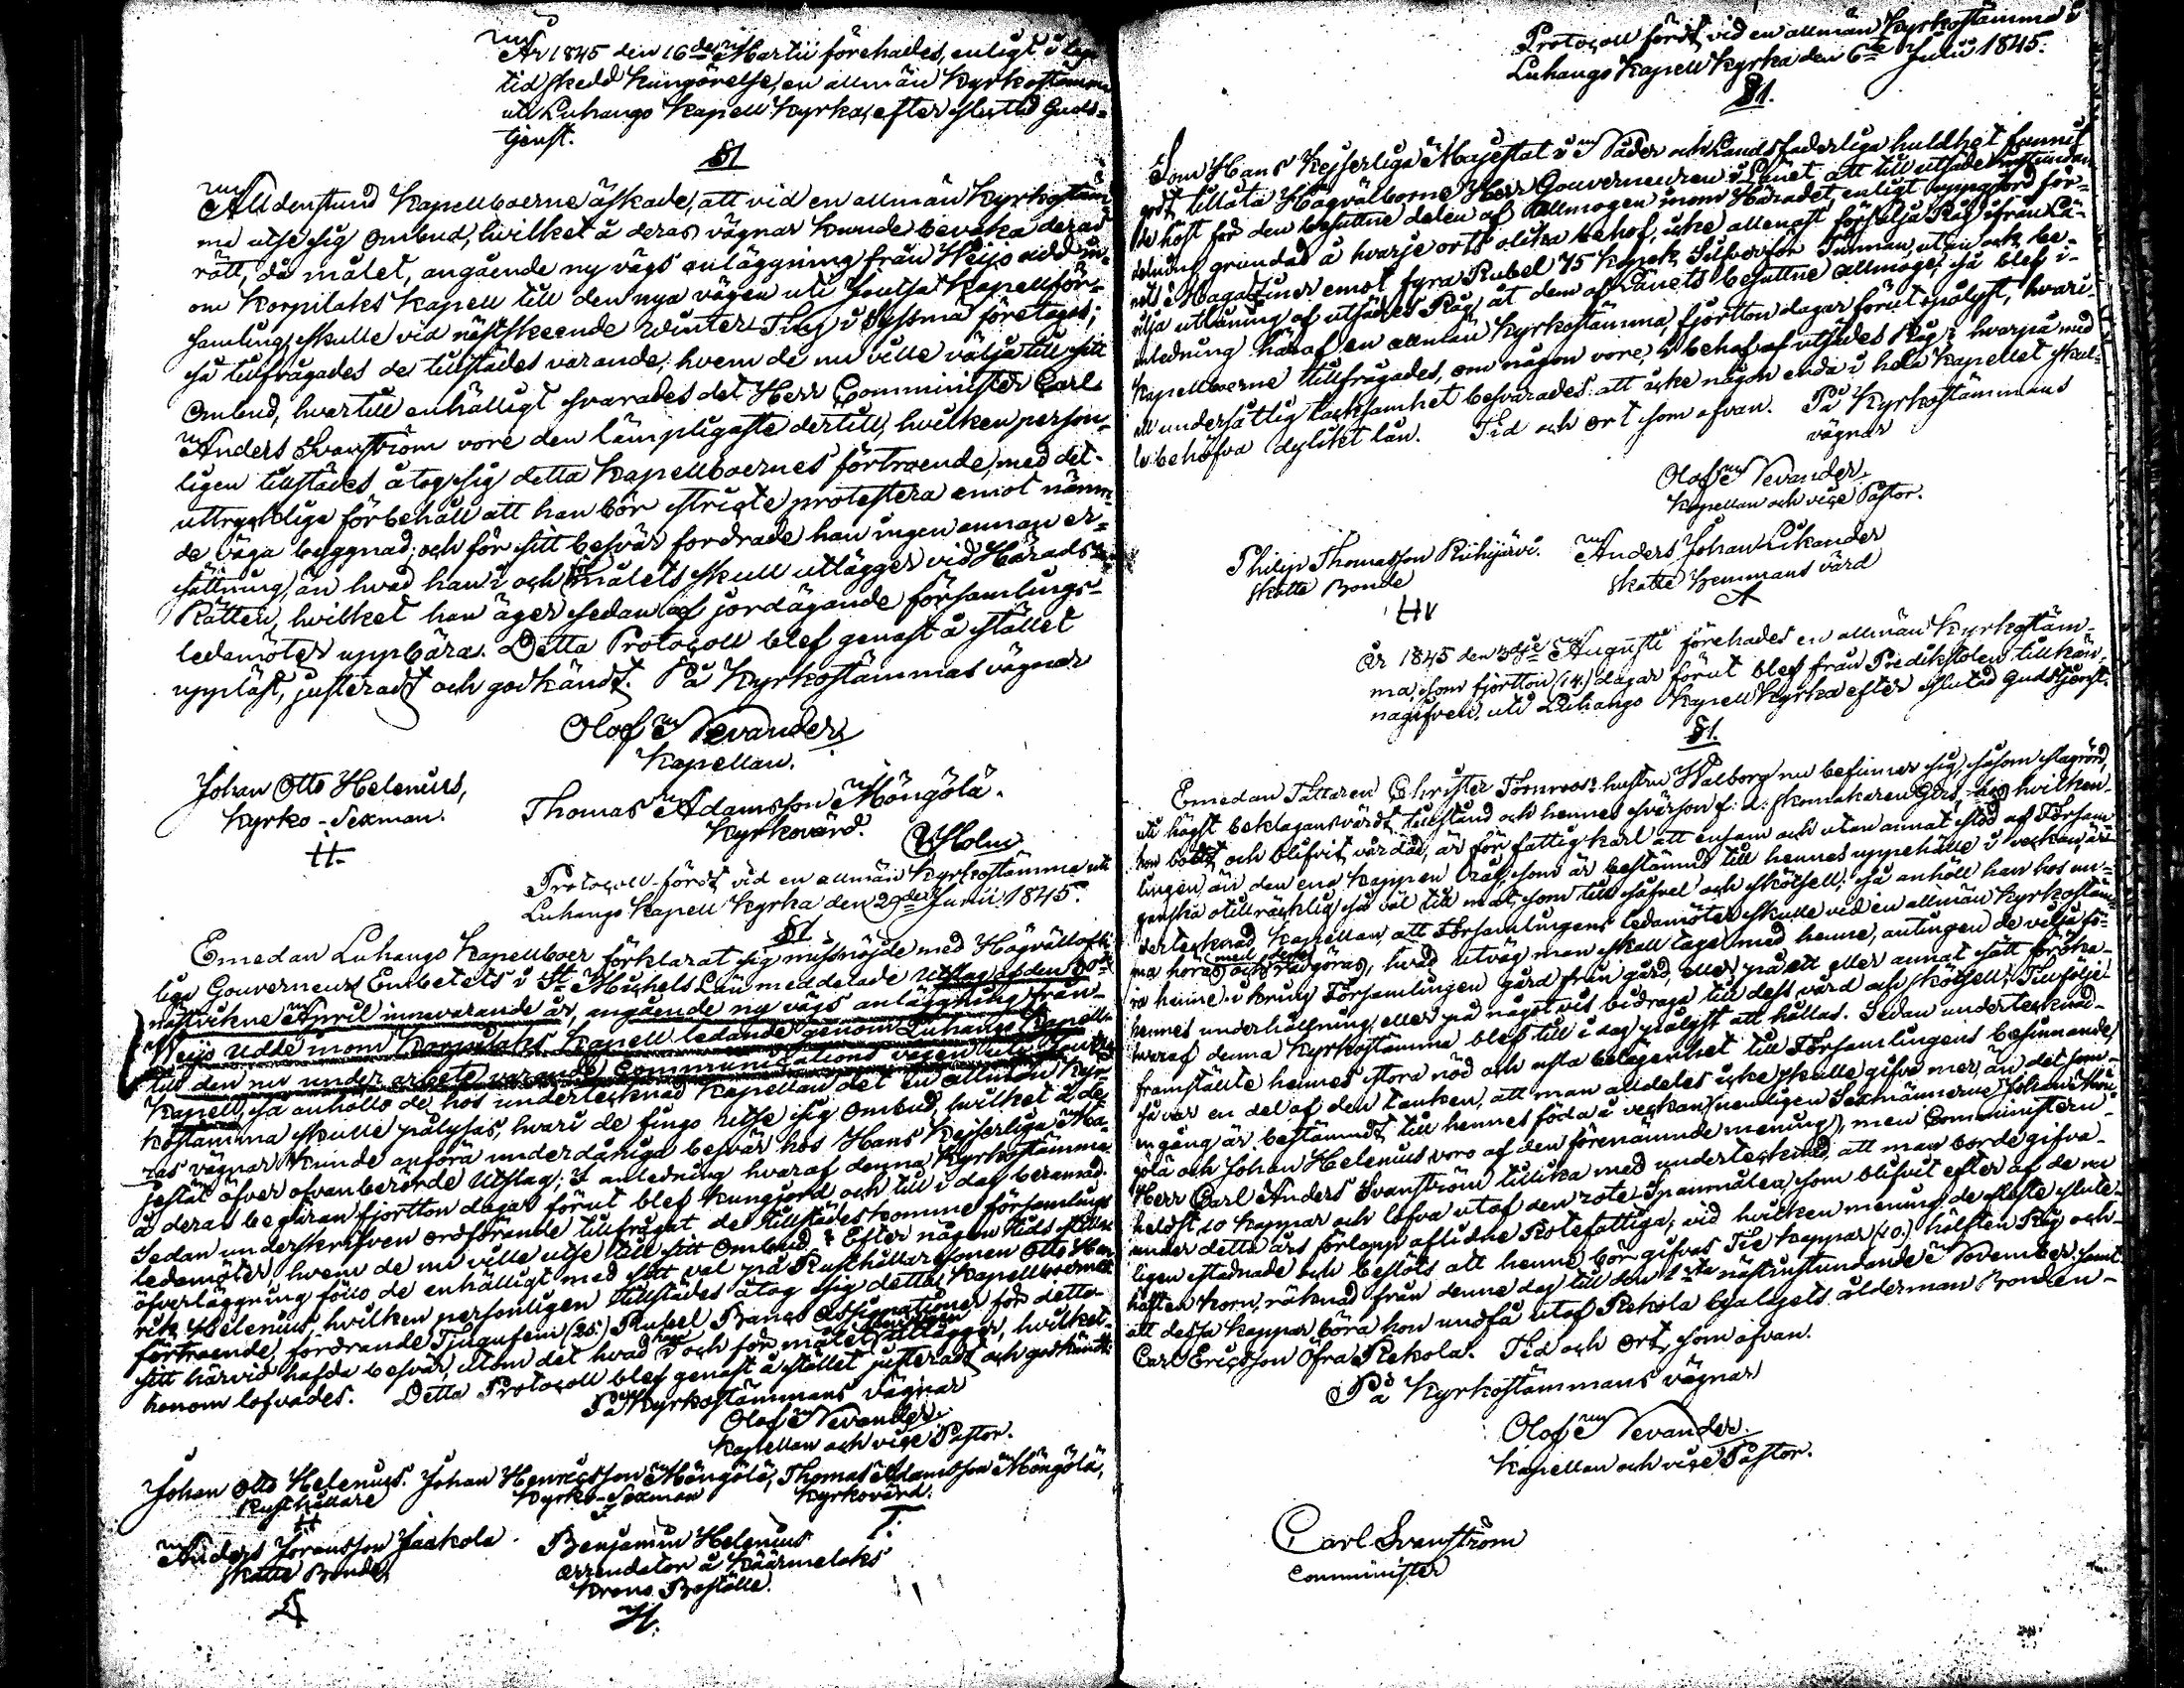 År 1845 den 16de Martii förehades, enligt i laga
tid skedd kungörelse, en allmän Kyrkostämma
uti Luhango Kapell Kyrka, efter slutad Guds-
tjenst.
§1
Alldenstund Kapellboerne äskade, att vid en allmän Kyrkostäm
ma utse sig Ombud, hvilket å deras vägnar kunde bevaka deras
rätt, då målet, angående ny vägs anläggning från Weijo udd in-
om Korpilaks Kapell till den nya vägen uti Joutsa Kapellför-
samling, skulle vid nästskeende Winter Ting i Sysmä företagas;
så tillfrågades de tillstädes varande, hvem de nu ville välja till sitt
Ombud, hvartill enhälligt svarades det Herr Comminister Carl
Anders Svanström vore den lämpligaste dertill, hvilken person-
ligen tillstädes åtog sig detta Kapellboernes förtroende, med det
uttryckliga förbehåll att han bör stricte protestera emot nämn-
de väga byggnad; och för sitt besvär fordrade han ingen annan er-
sättning, än hvad han i och för målets skull utlägger vid Härads-
Rätten, hvilket han äger sedan af jordägande församlings-
ledamöter uppbära. Detta Protocoll blef genast å stället
uppläst, justeradt och godkändt. På Kyrkostämmas vägnar
Olof Nevander,
Kapellan.
Johan Otto Helenius, Thomas Adamsson Möngölä.
Kyrko-Sexman. Kyrkovärd.
H. Holm
Protocoll fördt vid en allmän Kyrkostämma uti
Luhango Kapell Kyrka den 29de Junii 1845.
§1
Emedan Luhango Kapellboer förklarat sig missnöjde med Högvällofli
liga Gouverneurs Embetets i St Michels Län meddelade Utslag af den
nästvikne April innevarande år, angående ny vägs anläggning från
Weijo Udde inom Korpilaks Kapell ledande genom Luhango Kapell
till den nu under arbete varande Communications vägen uti Joutsa
Kapell, så anhöllo de hos undertecknad Kapellan det en allmän Kyr
kostämma skulle pålysas, hvari de fingo utse sig Ombud, hvilket å de
ras vägnar kunde anföra underdåniga besvär hos Hans Kejserliga Ma-
jestät öfver ofvanberörde Utslag; I anledning hvaraf denna Kyrkostämma
å deras begäran fjortton dagar förut blef kungjord och till i dag beramad.
Sedan underskrifven ordförande tillfrågat de tillstädeskomne församlings
ledamöter, hvem de nu ville utse till sitt Ombud? Efter någon tids
öfverläggning föllo de enhälligt med sitt val på Rusthållaresonen Otto Hen
rik Helenius, hvilken personligen tillstädes åtog sig detta Kapellboernes
förtroende, fordrande Tjugufem (25.) Rubel Banco Assignationer för detta
sitt härvid hafda besvär, utom det hvad han i och för målet utlägger, hvilket
honom lofvades. Detta Protocoll blef genast å stället justeradt och godkändt.
På Kyrkostämmans vägnar
Olof Nevander.
Kapellan och vice Pastor.
Johan Otto Helenius. Johan Henricsson Möngölä, Thomas Adamsson Möngölä,
Rusthållare Kyrko-Sexman Kyrkovärd.
H T.
Anders Göransson Jaakola Benjamin Helenius
Skatte Bonde, Arrendator å Käärmelaks
Krono Boställe.
H.
Protocoll fördt vid en allmän Kyrkostämma i
Luhango Kapell Kyrka den 6te Julii 1845.
§1.
Som Hans Kejserliga Majestät i Nåder och Landsfaderliga huldhet funnit
godt tillåta Högvälborne Herr Gouverneuren i Länet, att till utsäde instundan
de höst för den besuttne delen af Allmogen inom Häradet, enligt uppgjord för-
delning, grundad å hvarje orts olika behof, icke allenast försälja Råg ifrån Lä-
nets Magasiner emot fyra Rubel 75 Kopek Silfver för Tunnan, utan ock be-
vilja utlåning af utsädes Råg åt dem af Länets besuttne allmoge; så blef i
anledning häraf en allmän Kyrkostämma fjortton dagar förut pålyst, hvari
Kapellboerne tillfrågades, om någon vore i behof af utsädes Råg; hvarpå med
all undersåtlig tacksamhet besvarades att icke någon enda i hela Kapellet skul-
le behöfva dylikt lån. Tid och ort som ofvan. På Kyrkostämmans
vägnar
Olof Nevander.
Kapellan och vice Pastor.
Philip Thomasson Riihijärvi. Anders Johan Likander
Skatte Bonde Skatte Hemmans värd
År 1845 den 3dje Augusti förehades en allmän Kyrkostäm-
ma, som fjortton (14.) dagar förut blef från Predikstolen tillkän-
nagifven, uti Luhango Kapell Kyrka efter slutad Gudstjenst.
§1.
Emedan Tattaren Christer Törnroos hustru Walborg nu befinner sig, såsom slagrörd,
uti högst beklagansvärdt tillstånd och hennes svärson f. d. skomakaren hos hvilken
hon bodt och blifvit vårdad, är för fattig karl att ensam och utan annat stöd af Försam
lingen, än den ena kappen Råg, som är bestämd till hennes uppehälle i veckan, är
ganska otillräcklig så väl till mat som till såfvel och skötsell; så anhöll han hos un-
dertecknad Kapellan, att Församlingens ledamöter skulle vid en allmän Kyrkostäm-
ma höras och rådgöras, hvad utväg man skall taga med henne, antingen de vilja fö-
ra henne i kring Församlingen gård från gård, eller på ett eller annat sätt försöka
hennes underhållning, eller på något vis bidraga till dess vård och skötsell; Tillfölje
hvaraf denna Kyrkostämma blef till i dag pålyst att hållas. Sedan undertecknad
framställte hennes stora nöd och usla belägenhet till Församlingens besinnande,
så var en del af den tanken, att man alldeles icke skulle gifva mer, än det som
en gång är bestämmdt till hennes föda i veckan (nemligen Sexmännerne Johan Mön
gölä och Johan Helenius voro af den förenämnde mening), men Comministern
Herr Carl Anders Svanström tillika med undertecknad, att man borde gifva
heldst 10 kappar och lofva utaf den rote-Spannmålen som blifvit efter af de nu
under detta års förlopp aflidne Rotefattiga; vid hvilken mening de fleste slute-
ligen stadnade och beslöts att henne bör gifvas Tie kappar (10.) hälften Råg och
hälften korn, räknad från denne dag till den 1sta nästinstundande November. samt
att dessa kappar böra hon undfå utaf Rekola byalagets ålderman Bonden
Carl Ericsson Öfra Rekola. Tid och ort, som ofvan.
På Kyrkostämmans vägnar
Olof Nevander.
Kapellan och vice Pastor.
Carl Svanström
Comminister